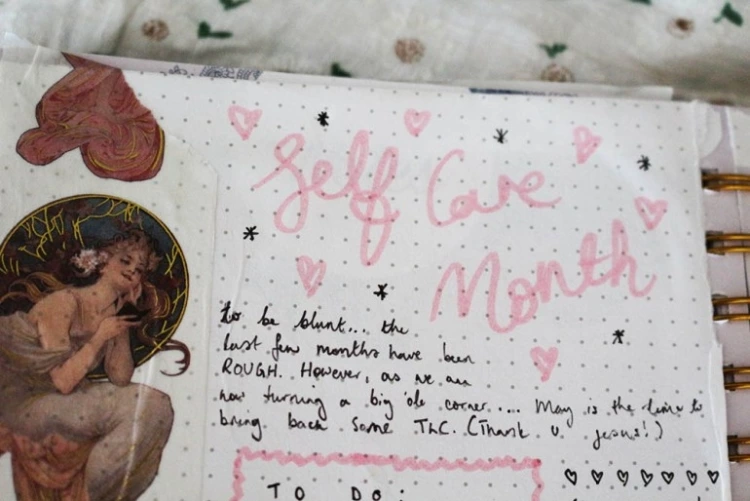 Self Care
Month
to be blunt... the
last few months have been
ROUGH. However, as we are
now turning a big 'ole corner.... May is the time to
bring back some TLC. (Thank u jesus!)
TO DO: